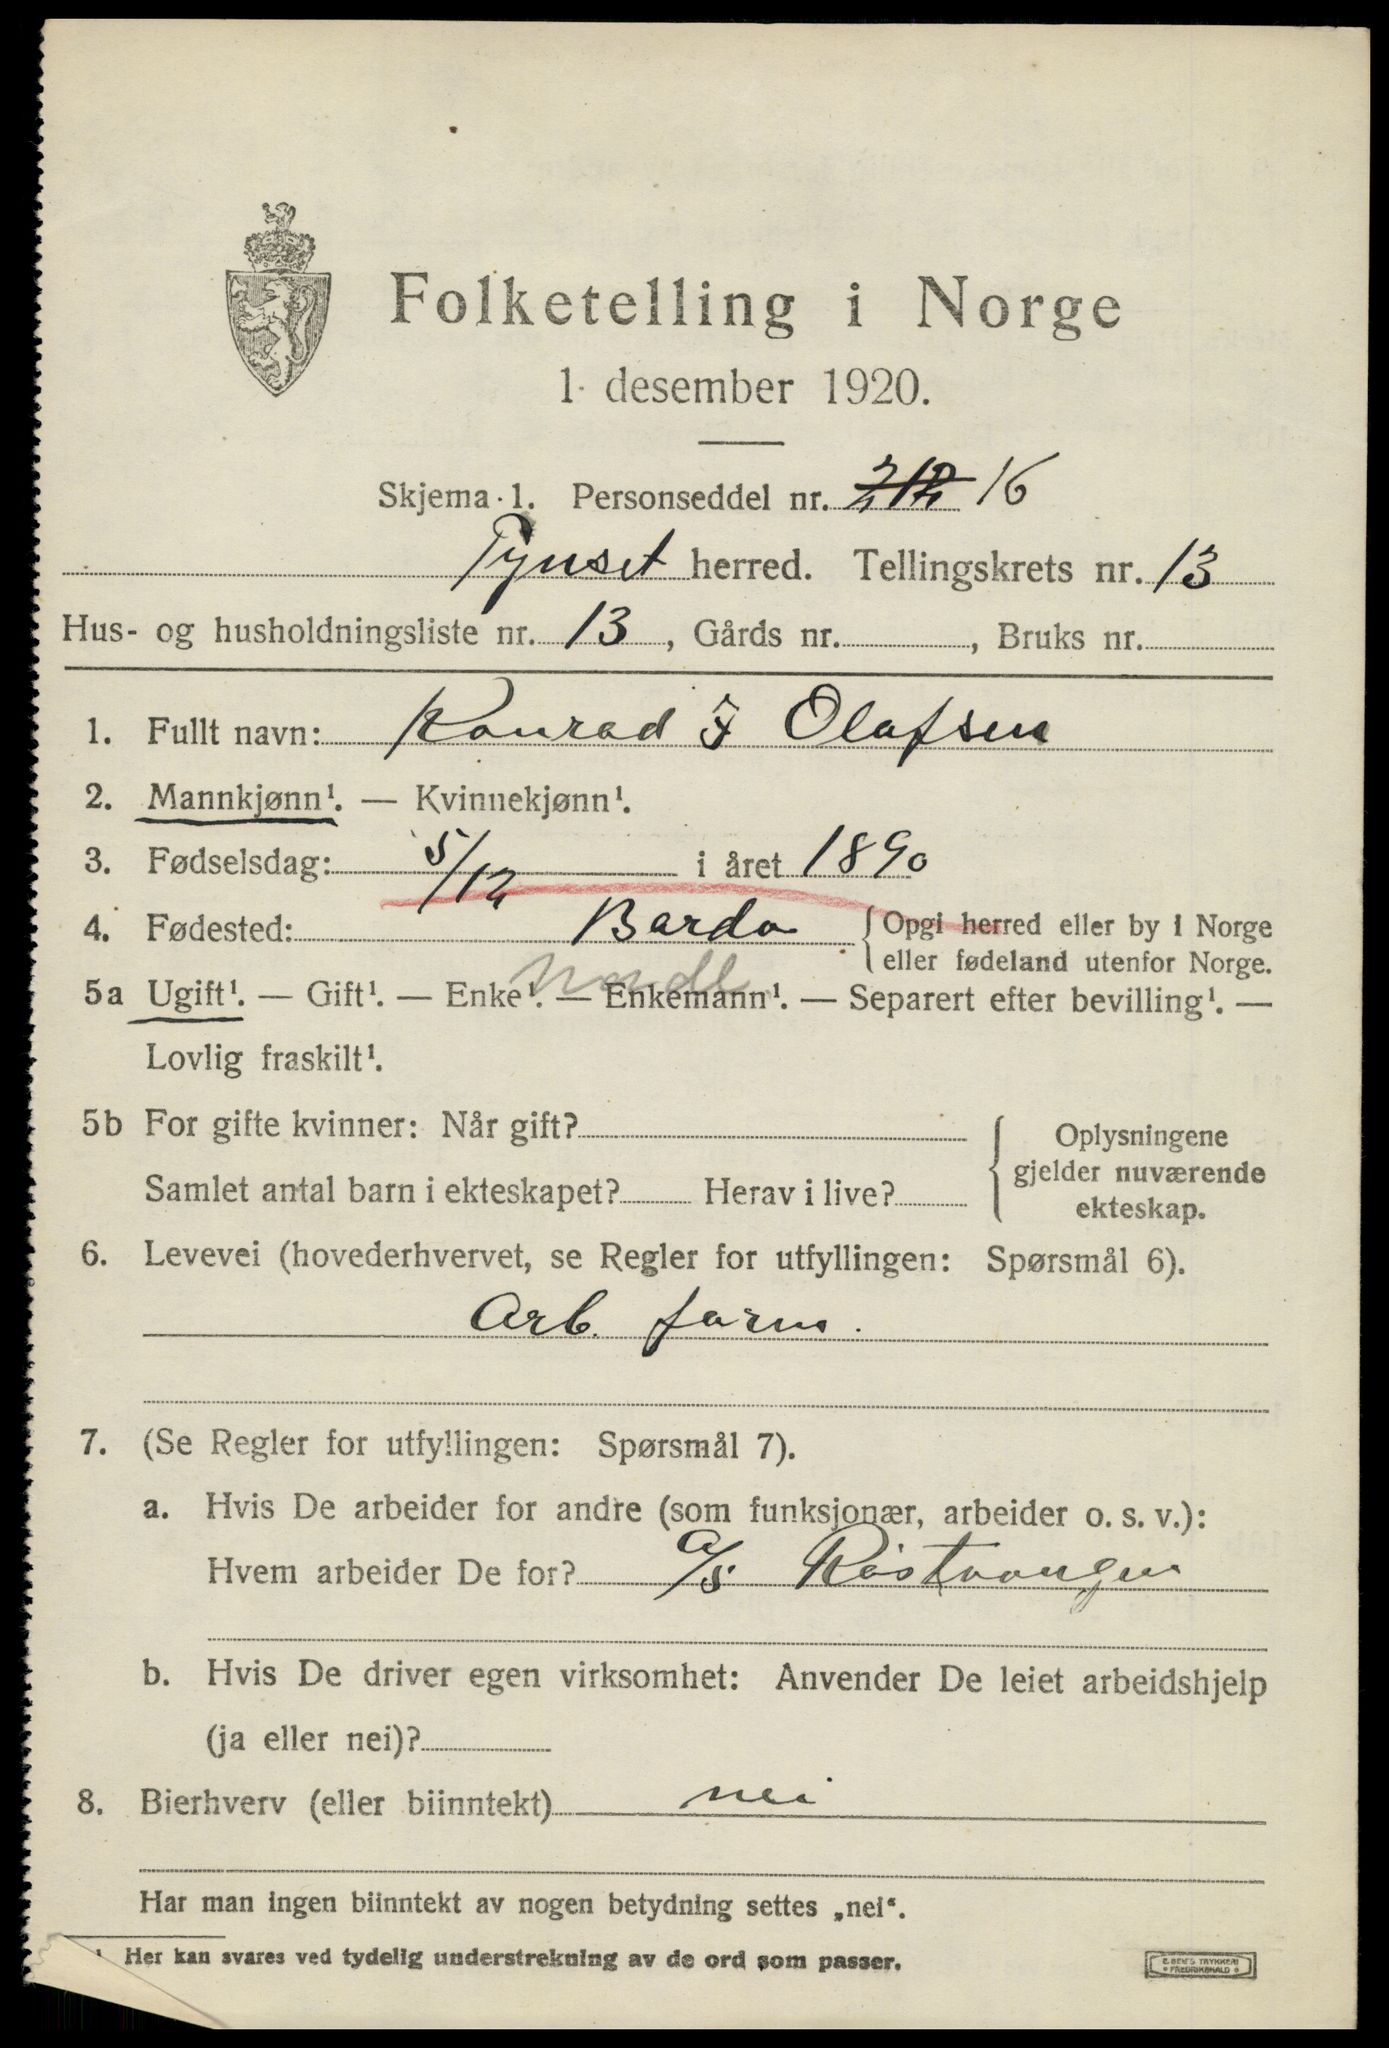 Folketelling i Norge
1. desember 1920.
Skjema 1. Personseddel nr. 16
Tynset herred. Tellingskrets nr. 13
Hus- og husholdningsliste nr. 13, Gårds nr. , Bruks nr.
1. Fullt navn: Konrad J Olafsen
2. Mannkjønn¹. — Kvinnekjønn¹.
3. Fødselsdag: 5/12 i året 1890
4. Fødested: Bardo { Opgi herred eller by i Norge
eller fødeland utenfor Norge.
Nordl.
5a Ugift¹. — Gift¹. — Enke¹. — Enkemann¹. — Separert efter bevilling¹. —
Lovlig fraskilt¹.
5b For gifte kvinner: Når gift?
Samlet antal barn i ekteskapet? Herav i live?
{ Oplysningene
gjelder nuværende
ekteskap.
6. Levevei (hovederhvervet, se Regler for utfyllingen: Spørsmål 6).
Arb.
7. (Se Regler for utfyllingen: Spørsmål 7).
a. Hvis De arbeider for andre (som funksjonær, arbeider o. s. v.):
Hvem arbeider De for? A/S Röstvangen
b. Hvis De driver egen virksomhet: Anvender De leiet arbeidshjelp
(ja eller nei)?
8. Bierhverv (eller biinntekt) nei
Har man ingen biinntekt av nogen betydning settes „nei“.
Her kan svares ved tydelig understrekning av de ord som passer.
E. SEM'S TRYKKERI
FREDRIKSHALD